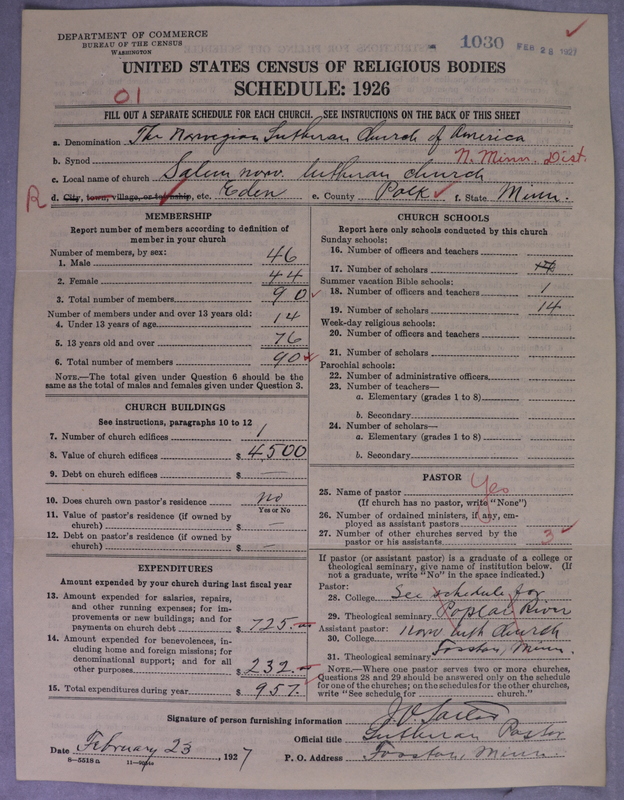 DEPARTMENT OF COMMERCE
BUREAU OF THE CENSUS
WASHINGTON
1030 FEB 28 1927
UNITED STATES CENSUS OF RELIGIOUS BODIES
SCHEDULE: 1926
01
FILL OUT A SEPARATE SCHEDULE FOR EACH CHURCH. SEE INSTRUCTIONS ON THE BACK OF THIS SHEET
a. Denomination The Norwegian Lutheran Church of America
b. Synod N. Minn. Dist.
c. Local name of church Salem norw. lutheran church
R d. City, town, village, or township, etc. Eden e. County Polk f. State Minn.
MEMBERSHIP
Report number of members according to definition of
member in your church
Number of members, by sex:
1. Male 46
2. Female 44
3. Total number of members 90
Number of members under and over 13 years old:
4. Under 13 years of age 14
5. 13 years old and over 76
6. Total number of members 90
NOTE.—The total given under Question 6 should be
same as the total of males and females given under Question 3.
CHURCH BUILDINGS
See instructions, paragraphs 10 to 12
7. Number of church edifices 1
8. Value of church edifices $ 4,500
9. Debt on church edifices $ —
10. Does church own pastor's residence no
Yes or No
11. Value of pastor's residence (if owned by
church) $ —
12. Debt on pastor's residence (if owned by
church) $ —
EXPENDITURES
Amount expended by your church during last fiscal year
13. Amount expended for salaries, repairs,
and other running expenses; for im-
provements or new buildings; and for
payments on church debt $ 725.—
14. Amount expended for benevolences, in-
cluding home and foreign missions; for
denominational support; and for all
other purposes $ 232.—
15. Total expenditures during year $ 957.
CHURCH SCHOOLS
Report here only schools conducted by this church
Sunday schools:
16. Number of officers and teachers
17. Number of scholars 14
Summer vacation Bible schools:
18. Number of officers and teachers 1
19. Number of scholars 14
Week-day religious schools:
20. Number of officers and teachers
21. Number of scholars
Parochial schools:
22. Number of administrative officers
23. Number of teachers—
a. Elementary (grades 1 to 8)
b. Secondary
24. Number of scholars—
a. Elementary (grades 1 to 8)
b. Secondary
PASTOR
25. Name of pastor Yes
(If church has no pastor, write "None")
26. Number of ordained ministers, if any, em-
ployed as assistant pastors
27. Number of other churches served by the
pastor or his assistants 3
If pastor (or assistant pastor) is a graduate of a college or
theological seminary, give name of institution below. (If
not a graduate, write "No" in the space indicated.)
Pastor:
28. College See schedule for
29. Theological seminary Poplar River
Assistant pastor:
30. College Norw luth Church
31. Theological seminary Fosston, Minn.
NOTE.—Where one pastor serves two or more churches,
Questions 28 and 29 should be answered only on the schedule
for one of the churches; on the schedules for the other churches,
write "See schedule for church."
Signature of person furnishing information
Official title Lutheran Pastor
Date February 23, 1927 P. O. Address Fosston, Minn.
8—5518 D.